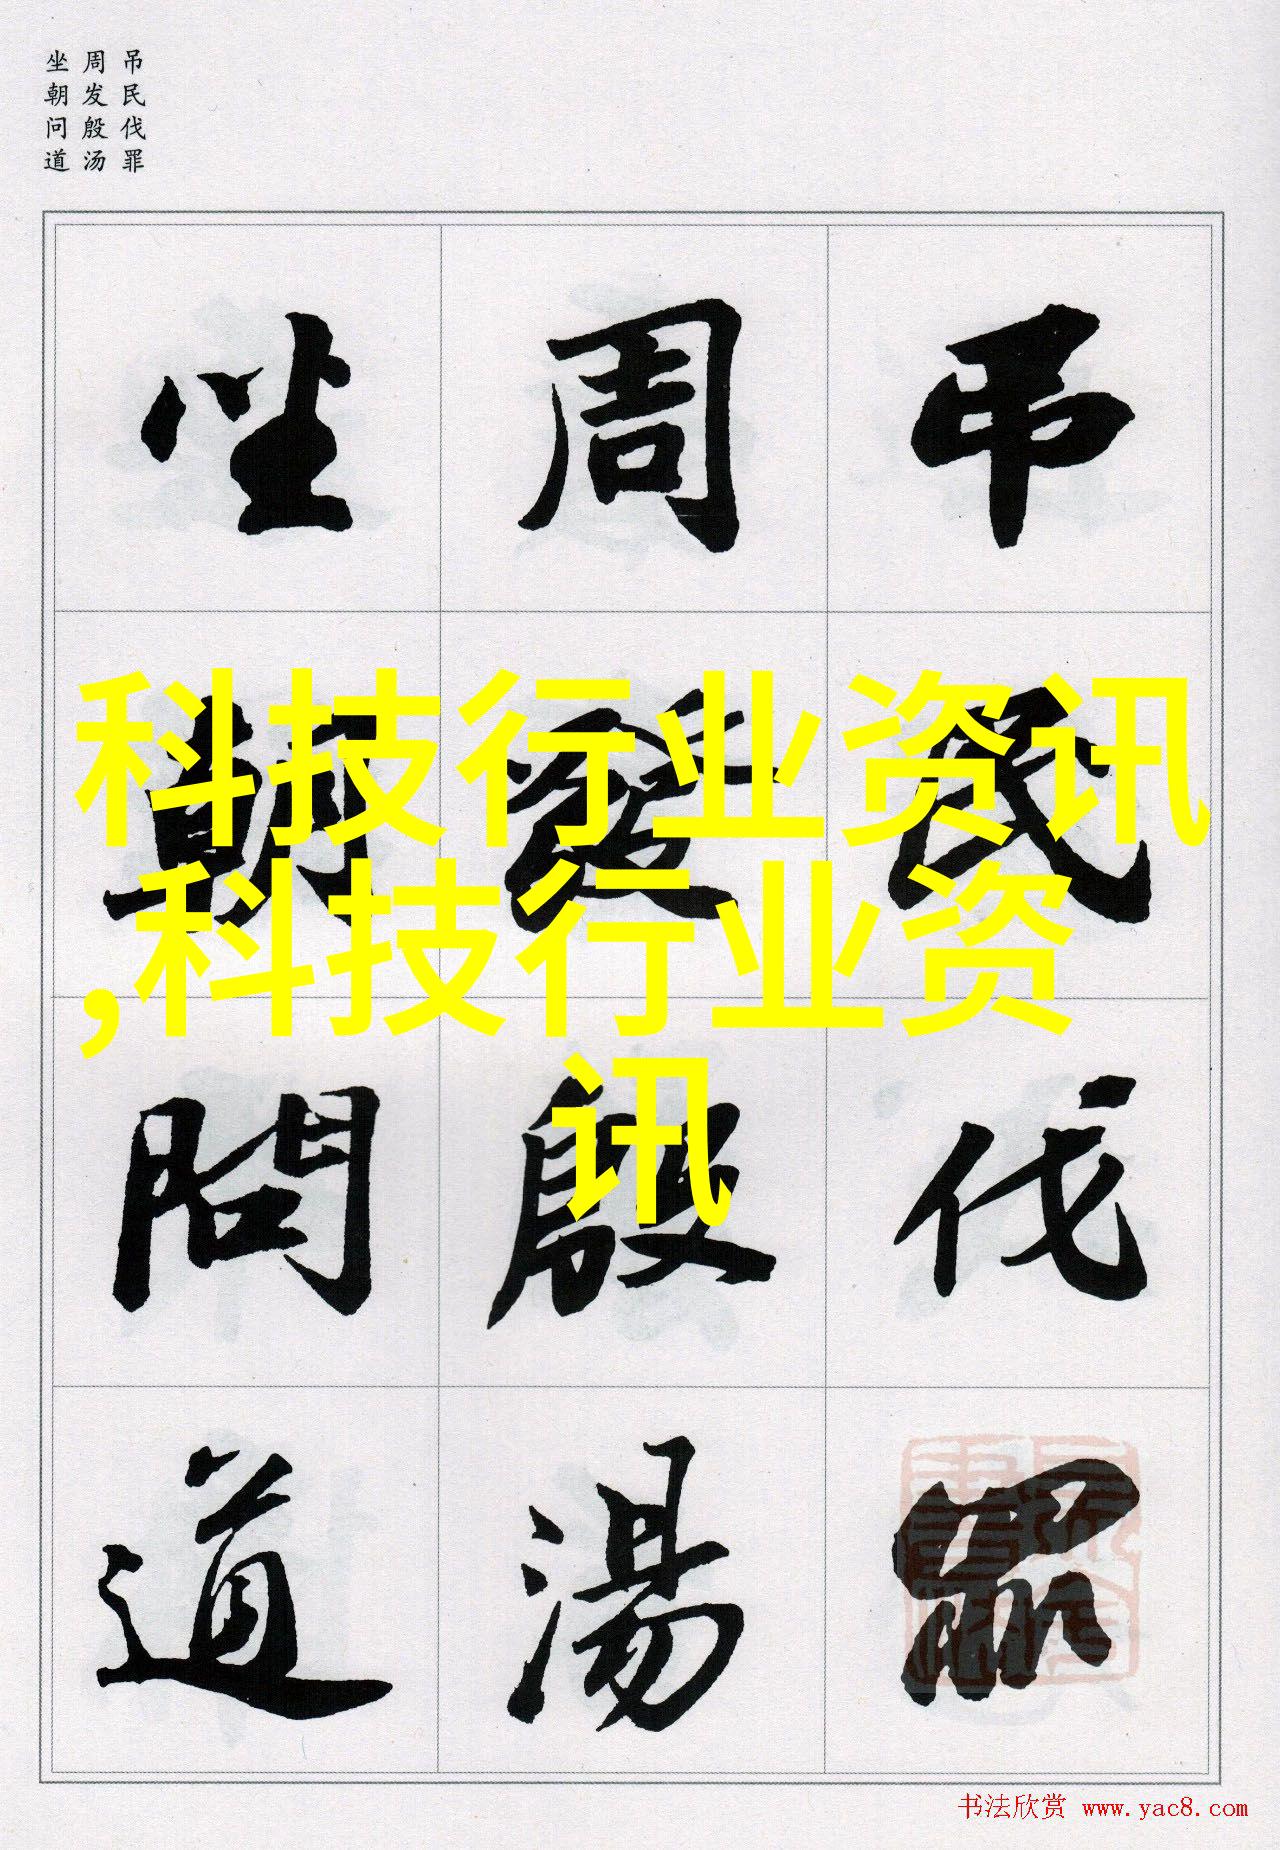 吊民伐罪
周发殷汤
坐朝问道
吊民伐罪
周發殷湯
坐朝問道
科技行业资讯
,科技行业资
讯
书法欣赏 www.yac8.com